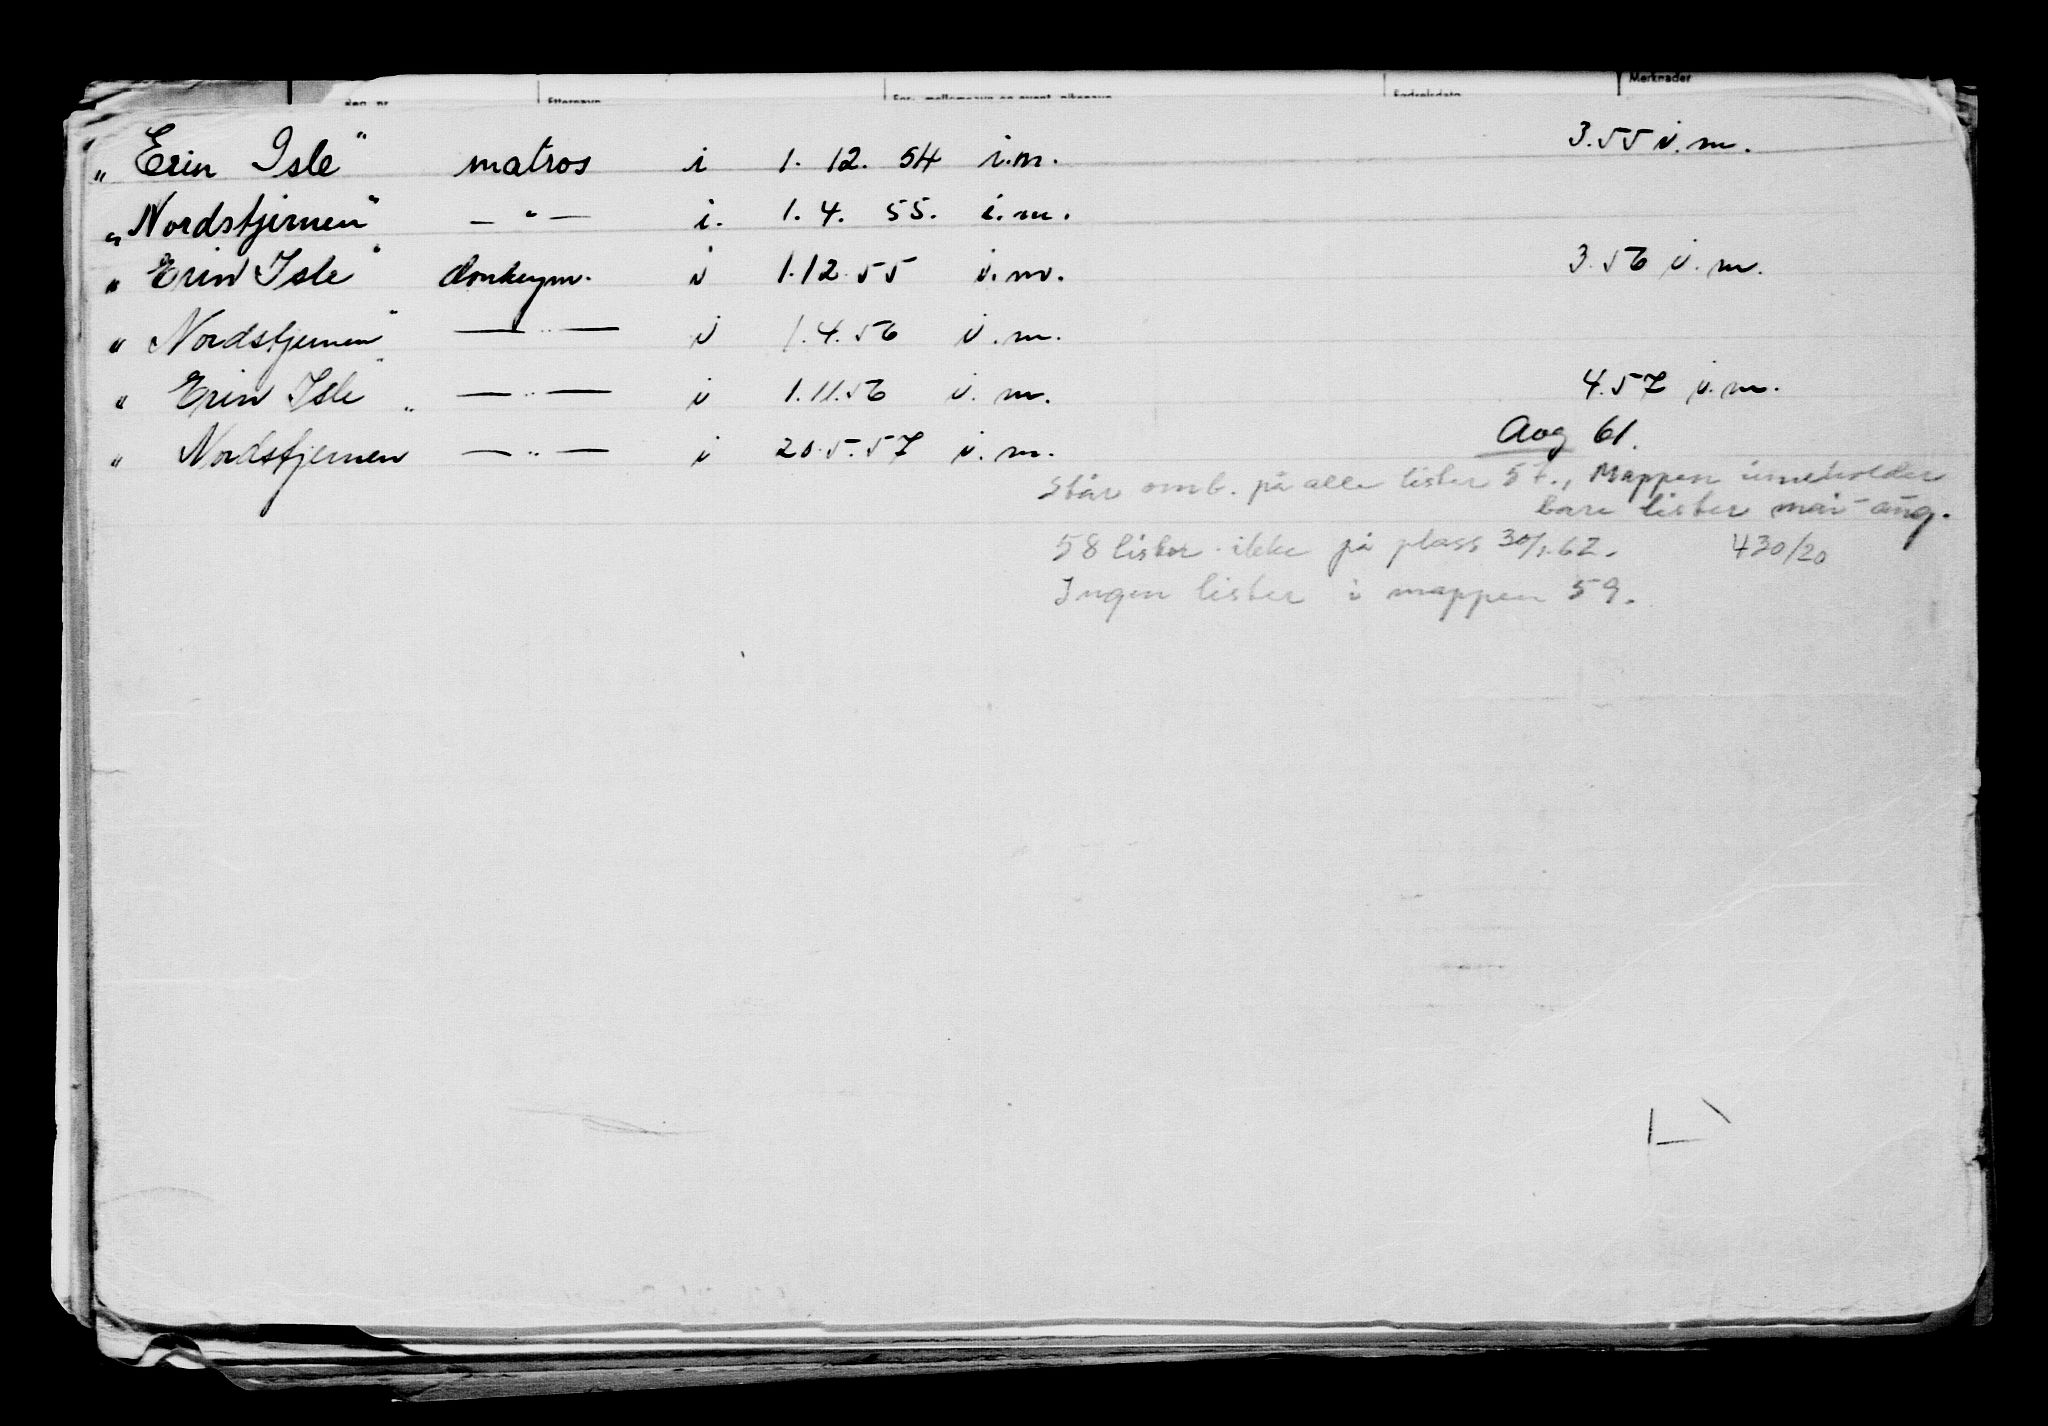 Merknader
„Erin Isle" matros i 1. 12. 54 i.m. 3.55 i.m.
„Nordstjernen" — " — i. 1. 4. 55. i.m.
„ Erin Isle" donkeym. i 1.12.55 i.m. 3.56 i.m.
„ Nordstjernen" — " — i 1.4.56 i.m.
„ Erin Isle" — " — i 1.11.56 i.m. 4.57 i.m.
„ Nordstjernen" — " — i 20.5.57 i.m. Aog 61.
Står omb. på alle lister 57., Mappen inneholder
bare lister mai - aug.
58 lister ikke på plass 30/1.62. 430/20
Ingen lister i mappen 59.